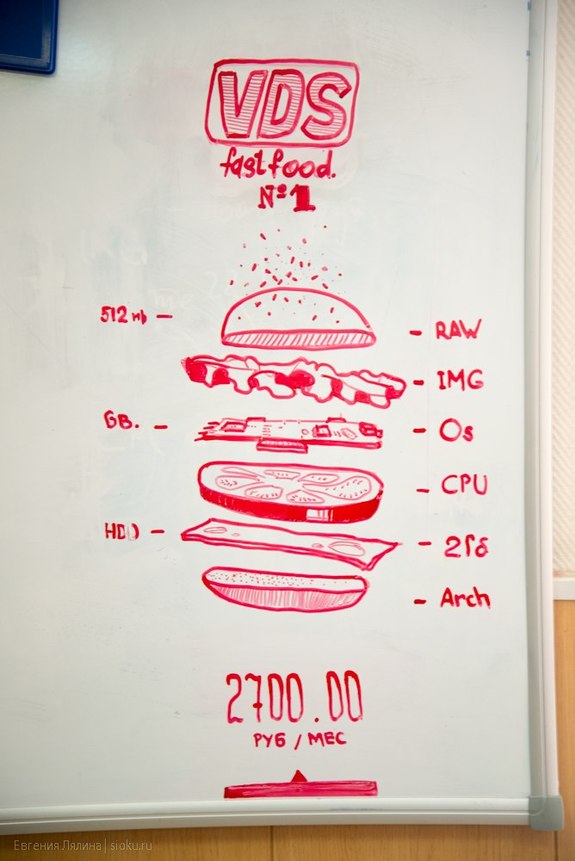 VDS
fast food.
№1
512 mb
RAW
IMG
GB.
Os
CPU
HDD
2Гб
Arch
2700.00
РУБ / МЕС
Евгения Лялина | sioku.ru